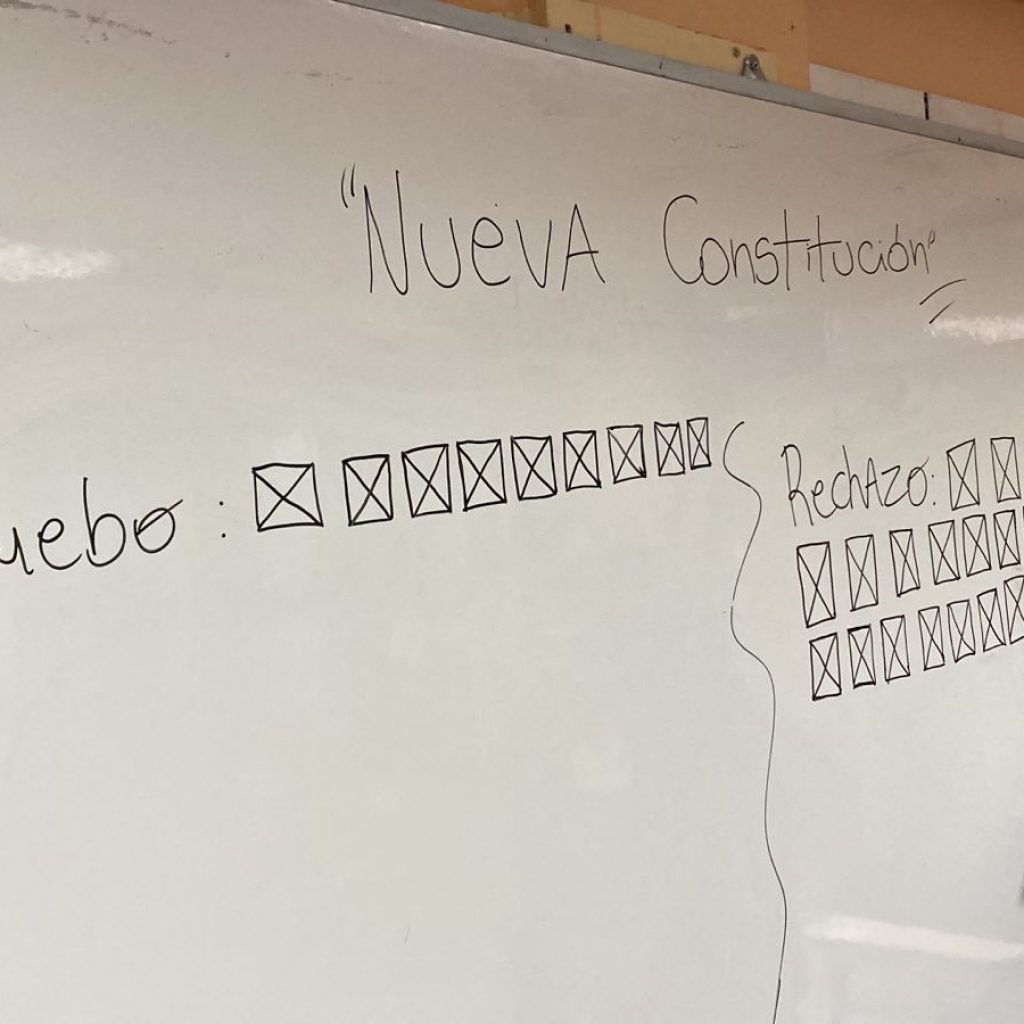 "NUEVA Constitución"
uebo :
Rechazo: